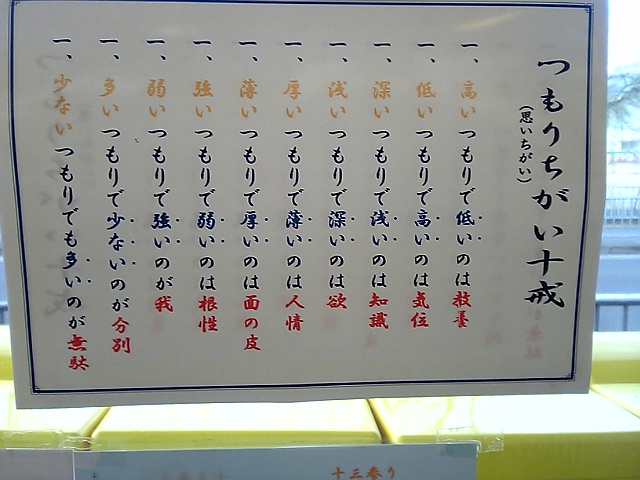 つもりちがい十戒
(思いちがい)
一、高いつもりで低いのは教養
一、低いつもりで高いのは気位
一、深いつもりで浅いのは知識
一、浅いつもりで深いのは欲
一、厚いつもりで薄いのは人情
一、薄いつもりで厚いのは面の皮
一、強いつもりで弱いのは根性
一、弱いつもりで強いのが我
一、多いつもりで少ないのが分別
一、少ないつもりでも多いのが無駄
十三参り